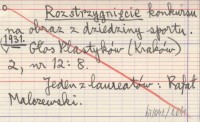 Rozstrzygnięcie konkursu
na obraz z dziedziny sportu.
1931. Głos Plastyków (Kraków)
2, nr 12: 8.
Jeden z laureatów: Rafał
Malczewski.